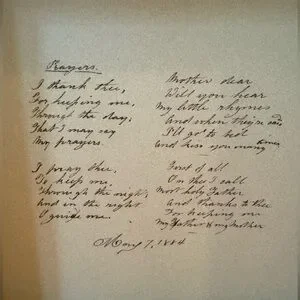 Prayers.
I thank thee,
For keeping me,
Through the day;
That I may say
My prayers.
I pray thee,
To keep me
Through the night;
And in the right
O guide me.
Mother dear
Will you hear
My little rhymes
And when they're said
I'll go to bed
and kiss you many times
First of all
On thee I call
Most holy Father,
And thanks to thee
For keeping me
my father & my mother
May 7, 1884